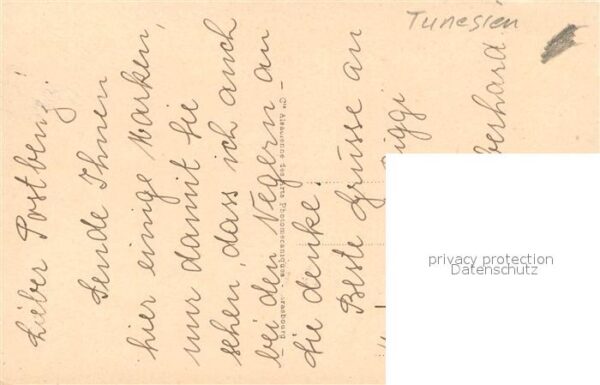 Tunesien
Lieber Postbeng.!
Sende Ihnen
hier einige Marken,
nur damit Sie
sehen, dass ich auch
bei den Negern an
Sie denke.
Beste Grüsse an
Eberhard.
Cie Alsacienne des Arts Photomécaniques - Strasbourg
privacy protection
Datenschutz